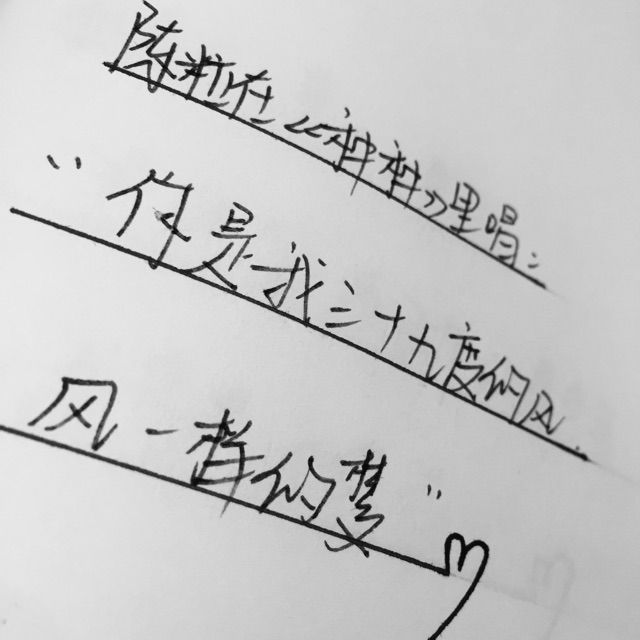 陈粒在《种种》里唱：
“你是我三十九度的风
风一样的梦”